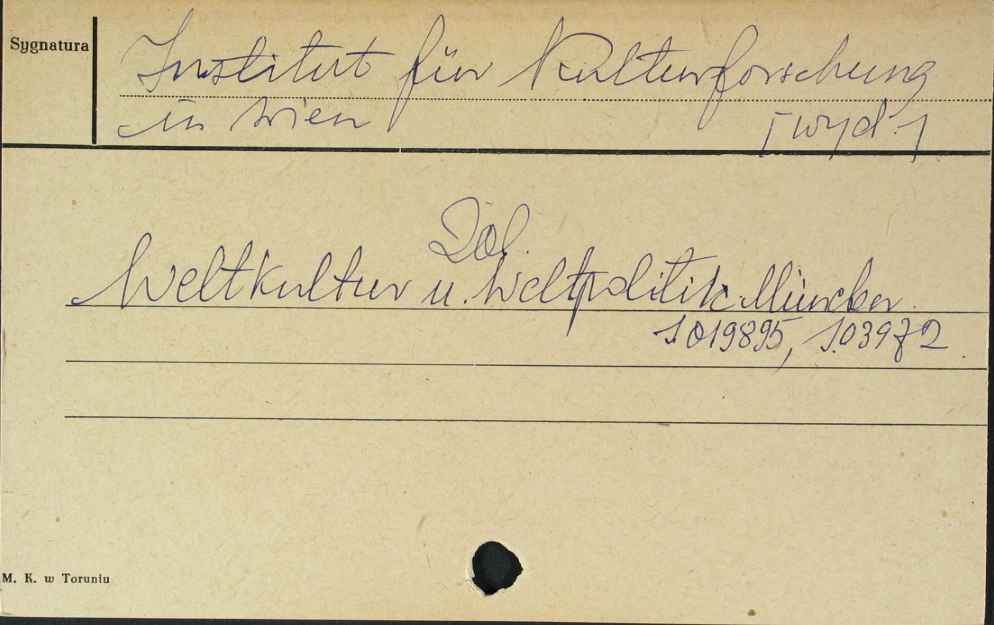 Sygnatura
Institut für Kulturforschung
in Wien [wyd.]
Zob.
Weltkultur u. Weltpolitik. München.
1019895, 103972.
M. K. w Toruniu